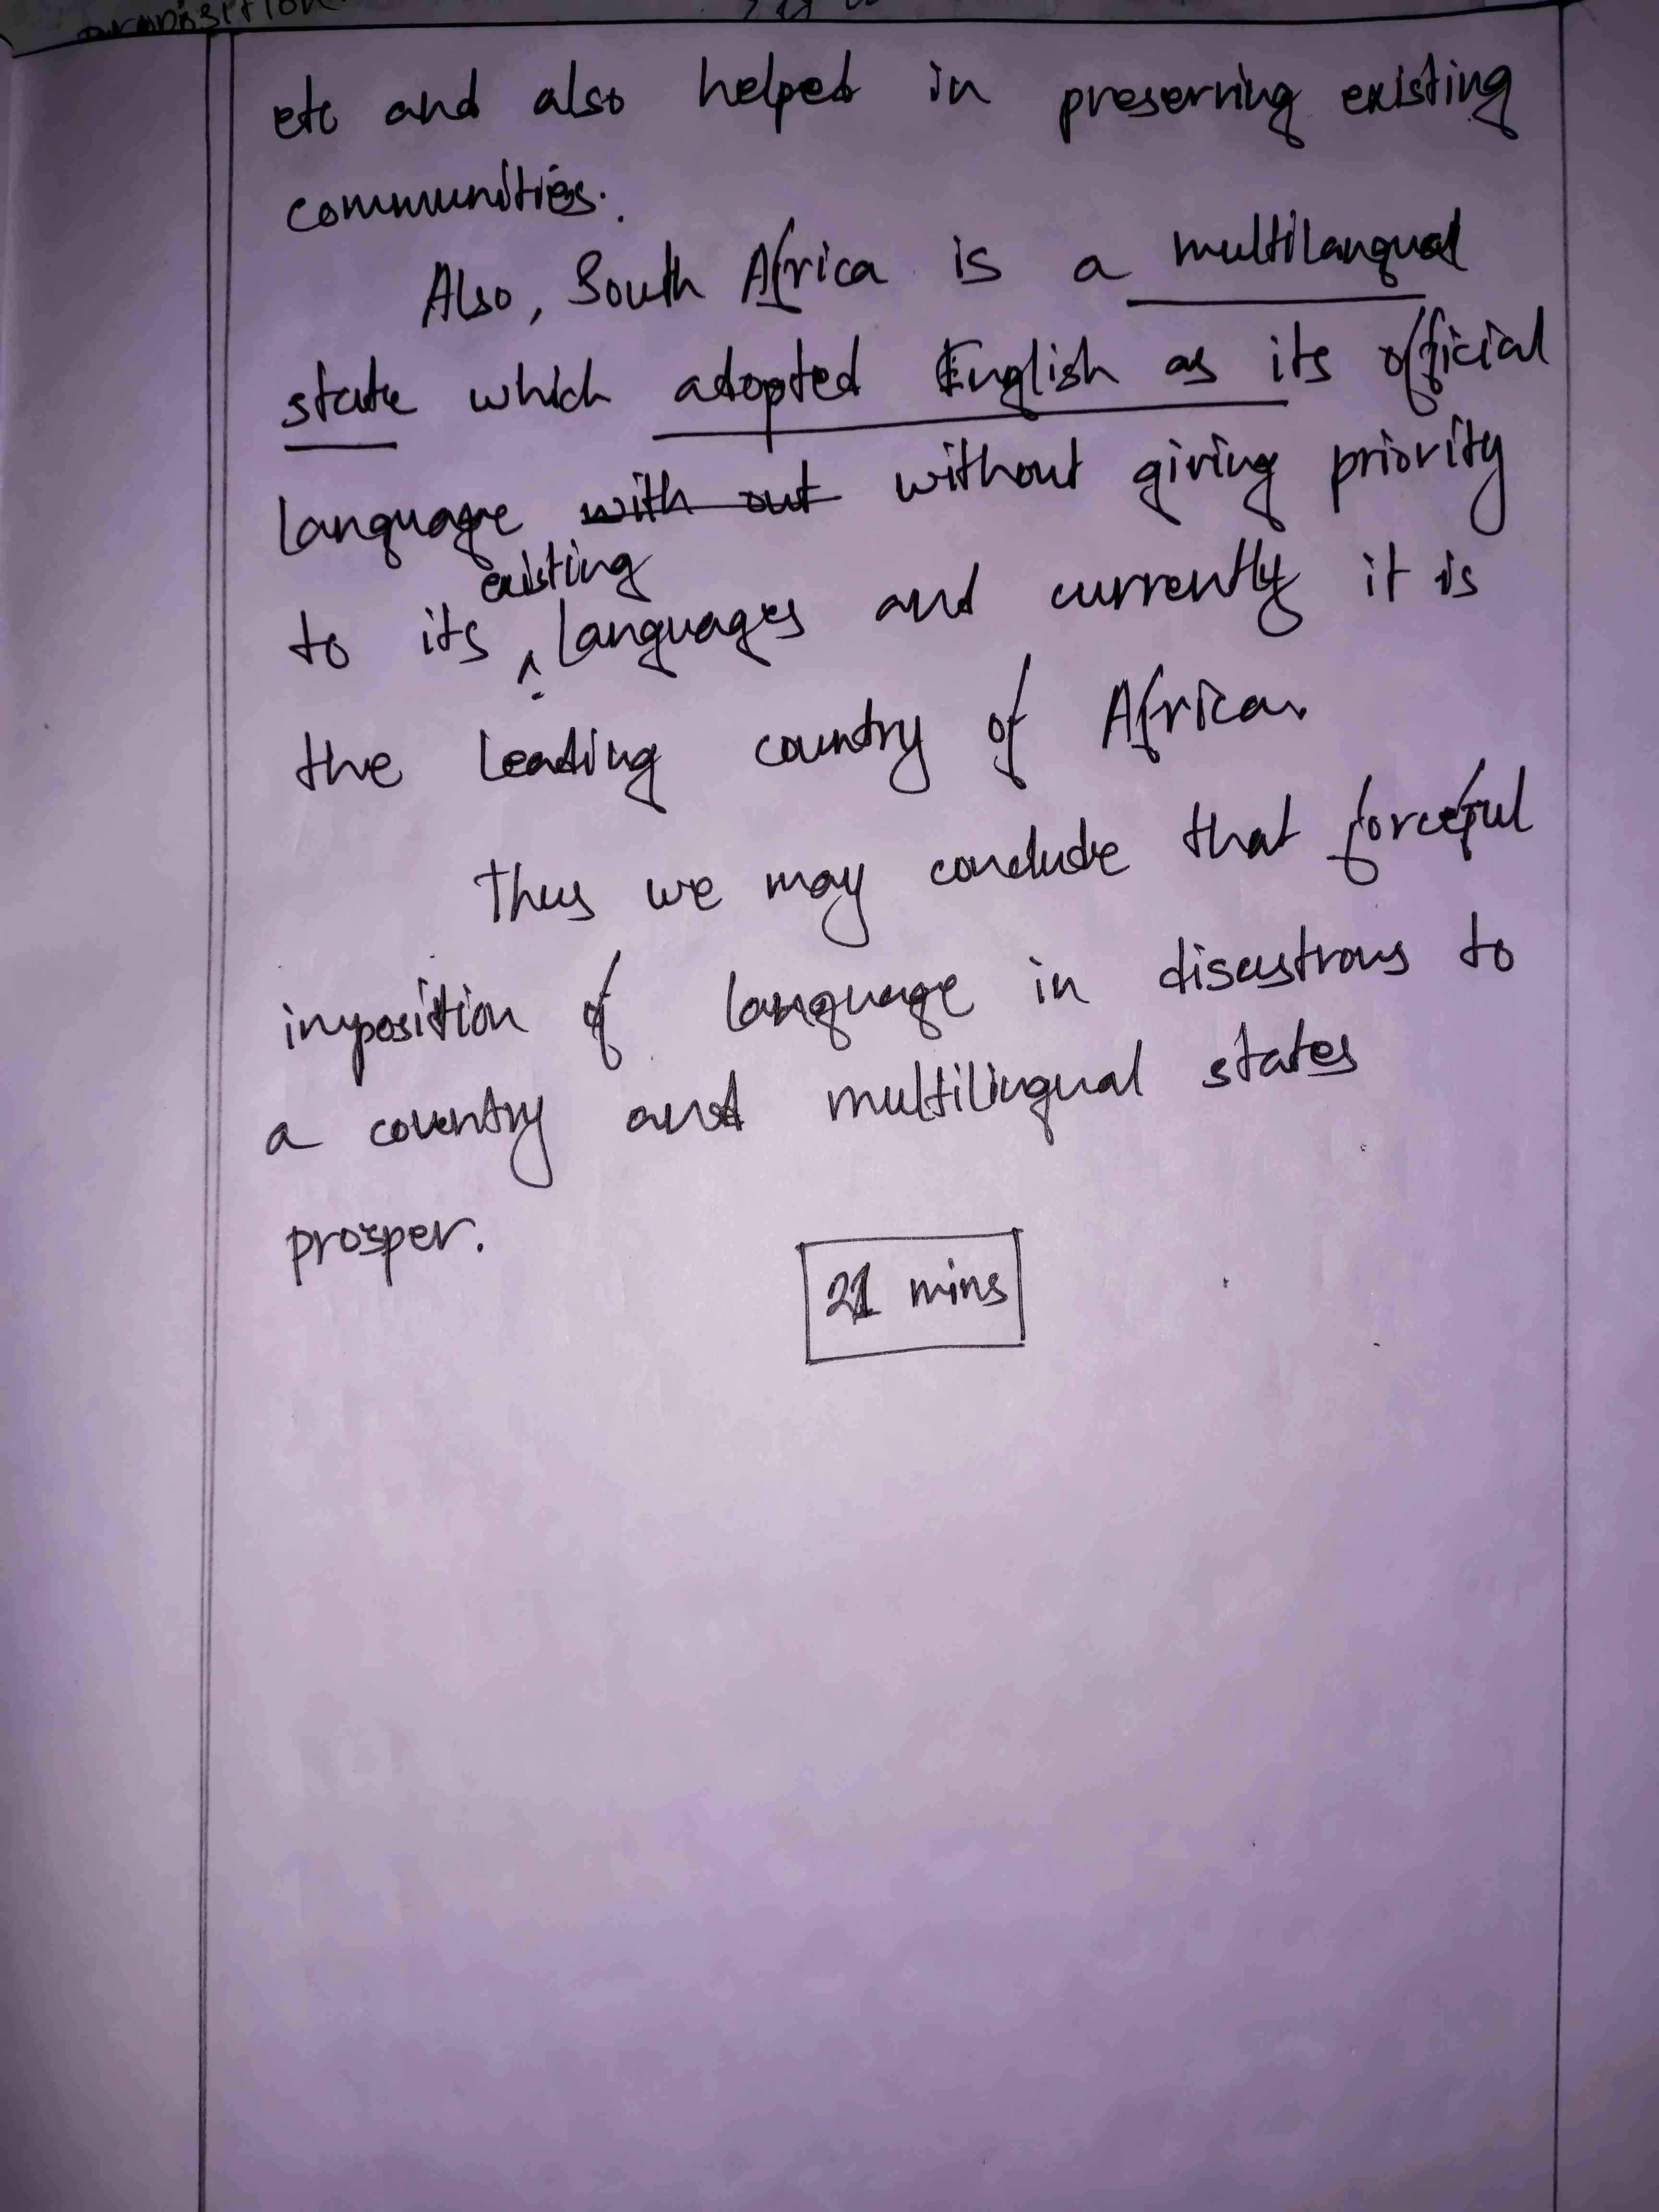 etc and also helped in preserving existing
communities.
Also, South Africa is a multilangual
state which adopted English as its official
language with out without giving priority
existing
to its languages and currently it is
the leading country of Africa.
Thus we may conclude that forceful
imposition of language in disastrous to
a country and multilingual states
prosper.
21 mins